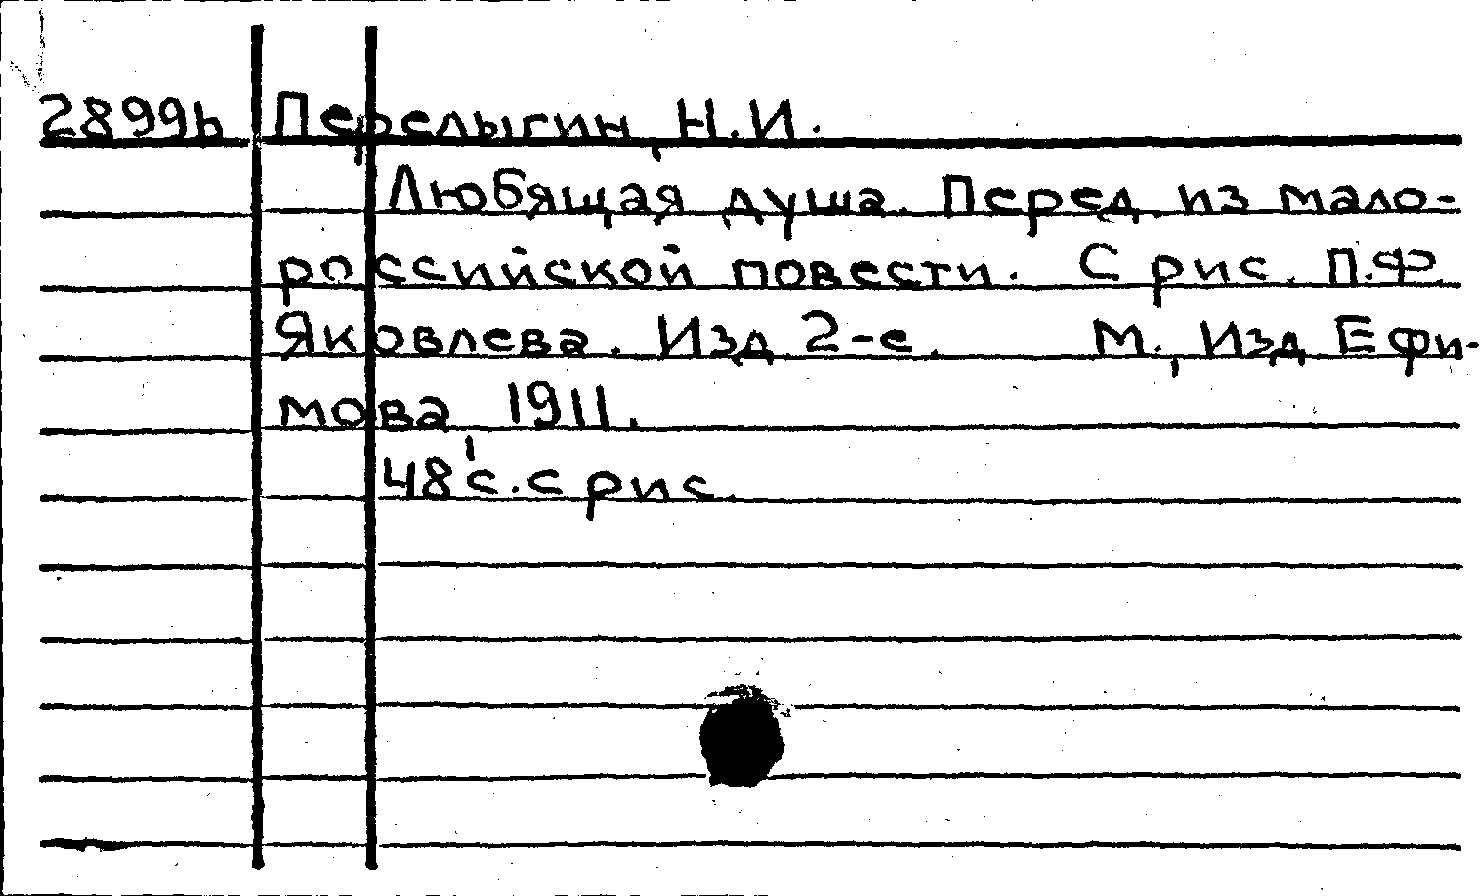 2899b Перелыгин, Н.И.
Любящая душа. Перед. из мало-
российской повести. С рис. П.Ф.
Яковлева. Изд. 2-е. М., Изд. Ефи-
мова, 1911.
48 с. с рис.